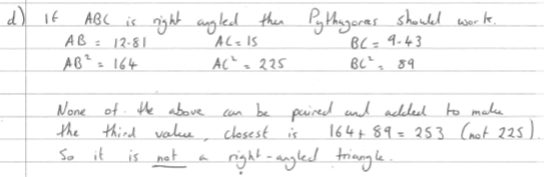 d) If ABC is right angled then Pythagoras should work.
AB = 12.81 AC = 15 BC = 9.43
AB² = 164 AC² = 225 BC² = 89
None of the above can be paired and added to make
the third value, closest is 164 + 89 = 253 (not 225).
So it is not a right-angled triangle.